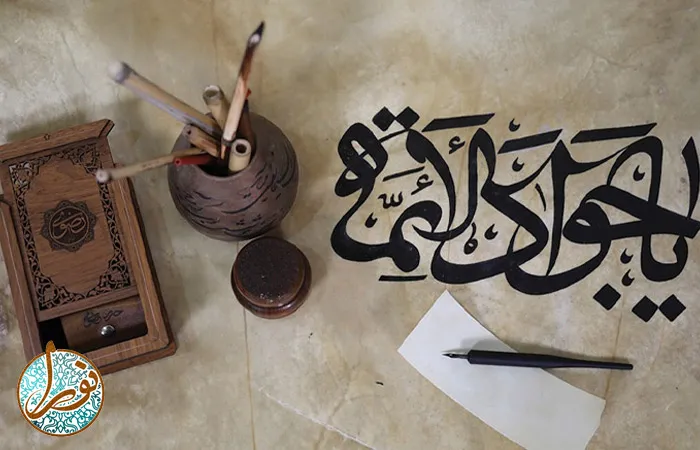 يا جواد الأئمّة